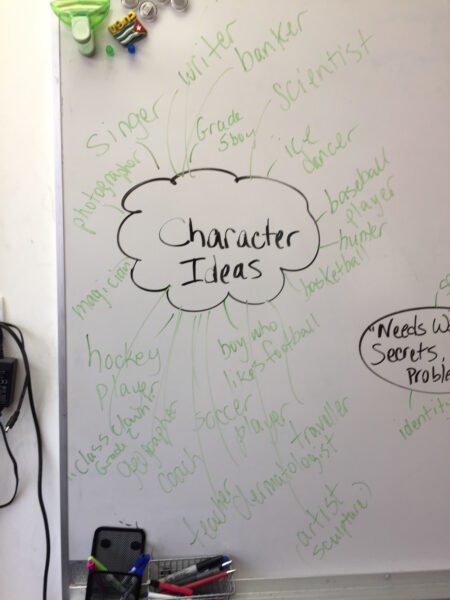 writer
banker
scientist
singer
Grade
5 boy
photographer
ice
dancer
baseball
player
hunter
basketball
Character
Ideas
magician
hockey
player
boy who
likes football
"Class Clown"
Grade
geographer
coach
soccer
player
traveller
teacher
Climatologist
artist
(sculpture)
"Needs
Secrets,
identity